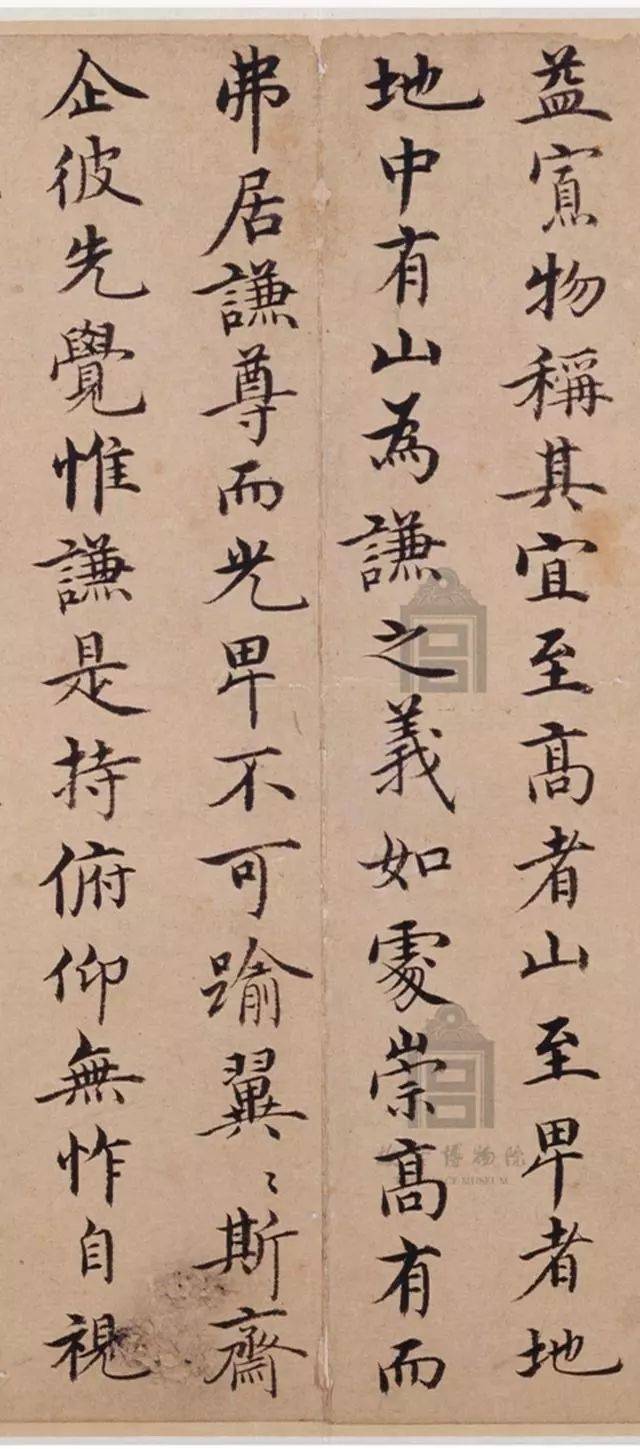 益寡物稱其宜至髙者山至卑者地
地中有山為謙之義如處崇髙有而
弗居謙尊而光卑不可踰翼〻斯齋
企彼先覺惟謙是持俯仰無怍自視
博物院
MUSEUM